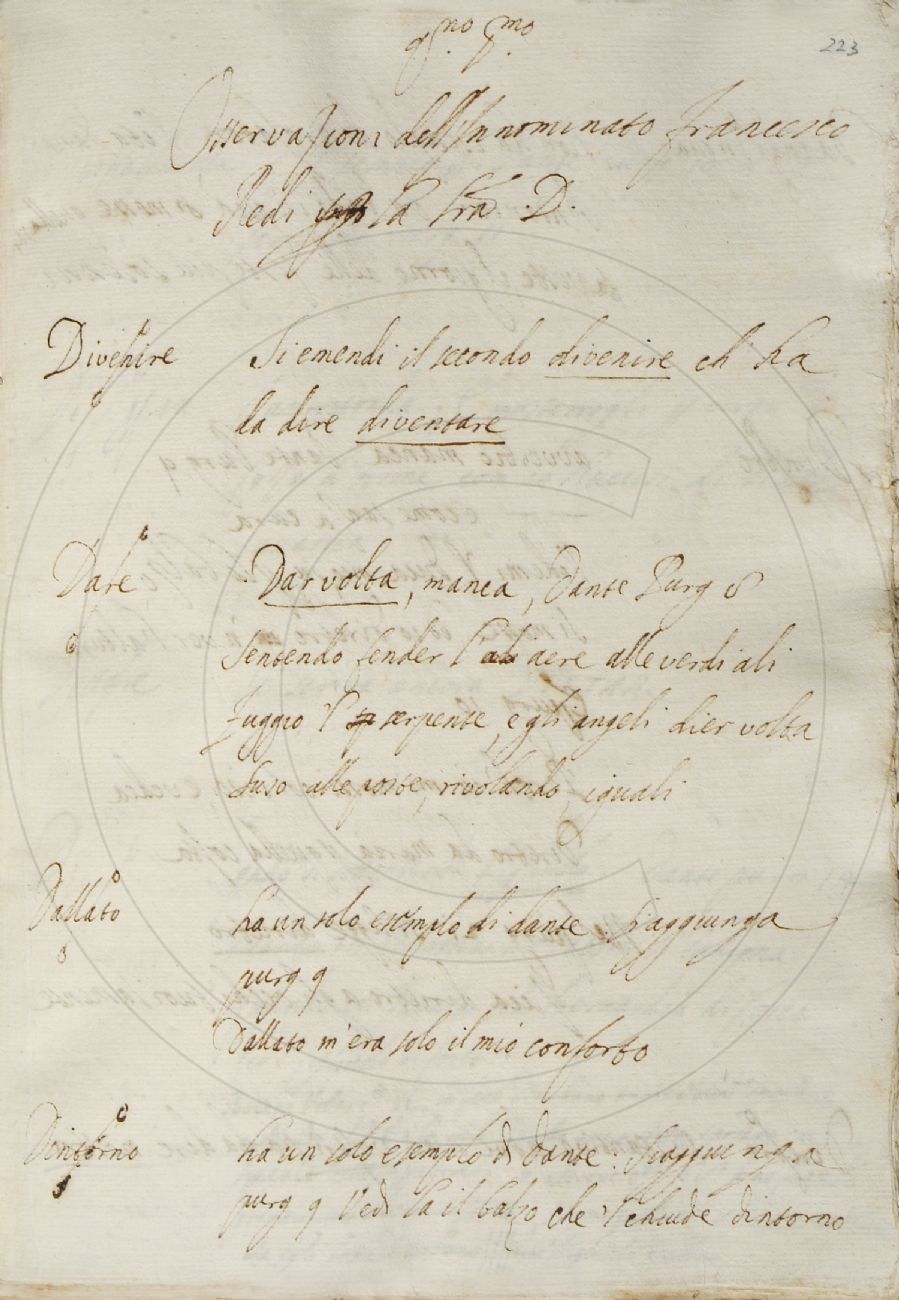 223
Osservazioni dell'Innominato Francesco
Redi la lra D.
Divenire Si emendi il secondo divenire ch' ha
da dire diventare
Dare Dar volta, manca, Dante Purg 8
Sentendo fender l' aere alle verdi ali
Fuggio 'l serpente, e gli angeli dier volta
Suso alle poste, rivolando, iguali
Dallato ha un solo esemplo di dante. Si aggiunga
purg 9
Dallato m'era solo il mio conforto
Dintorno ha un solo esemplo di Dante. Si aggiunga
purg 9 Vedi la il balzo che 'l chiude dintorno